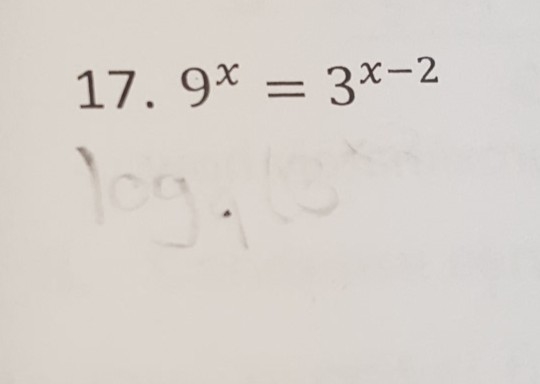 17. 9ˣ = 3ˣ⁻²
log₉(3ˣ